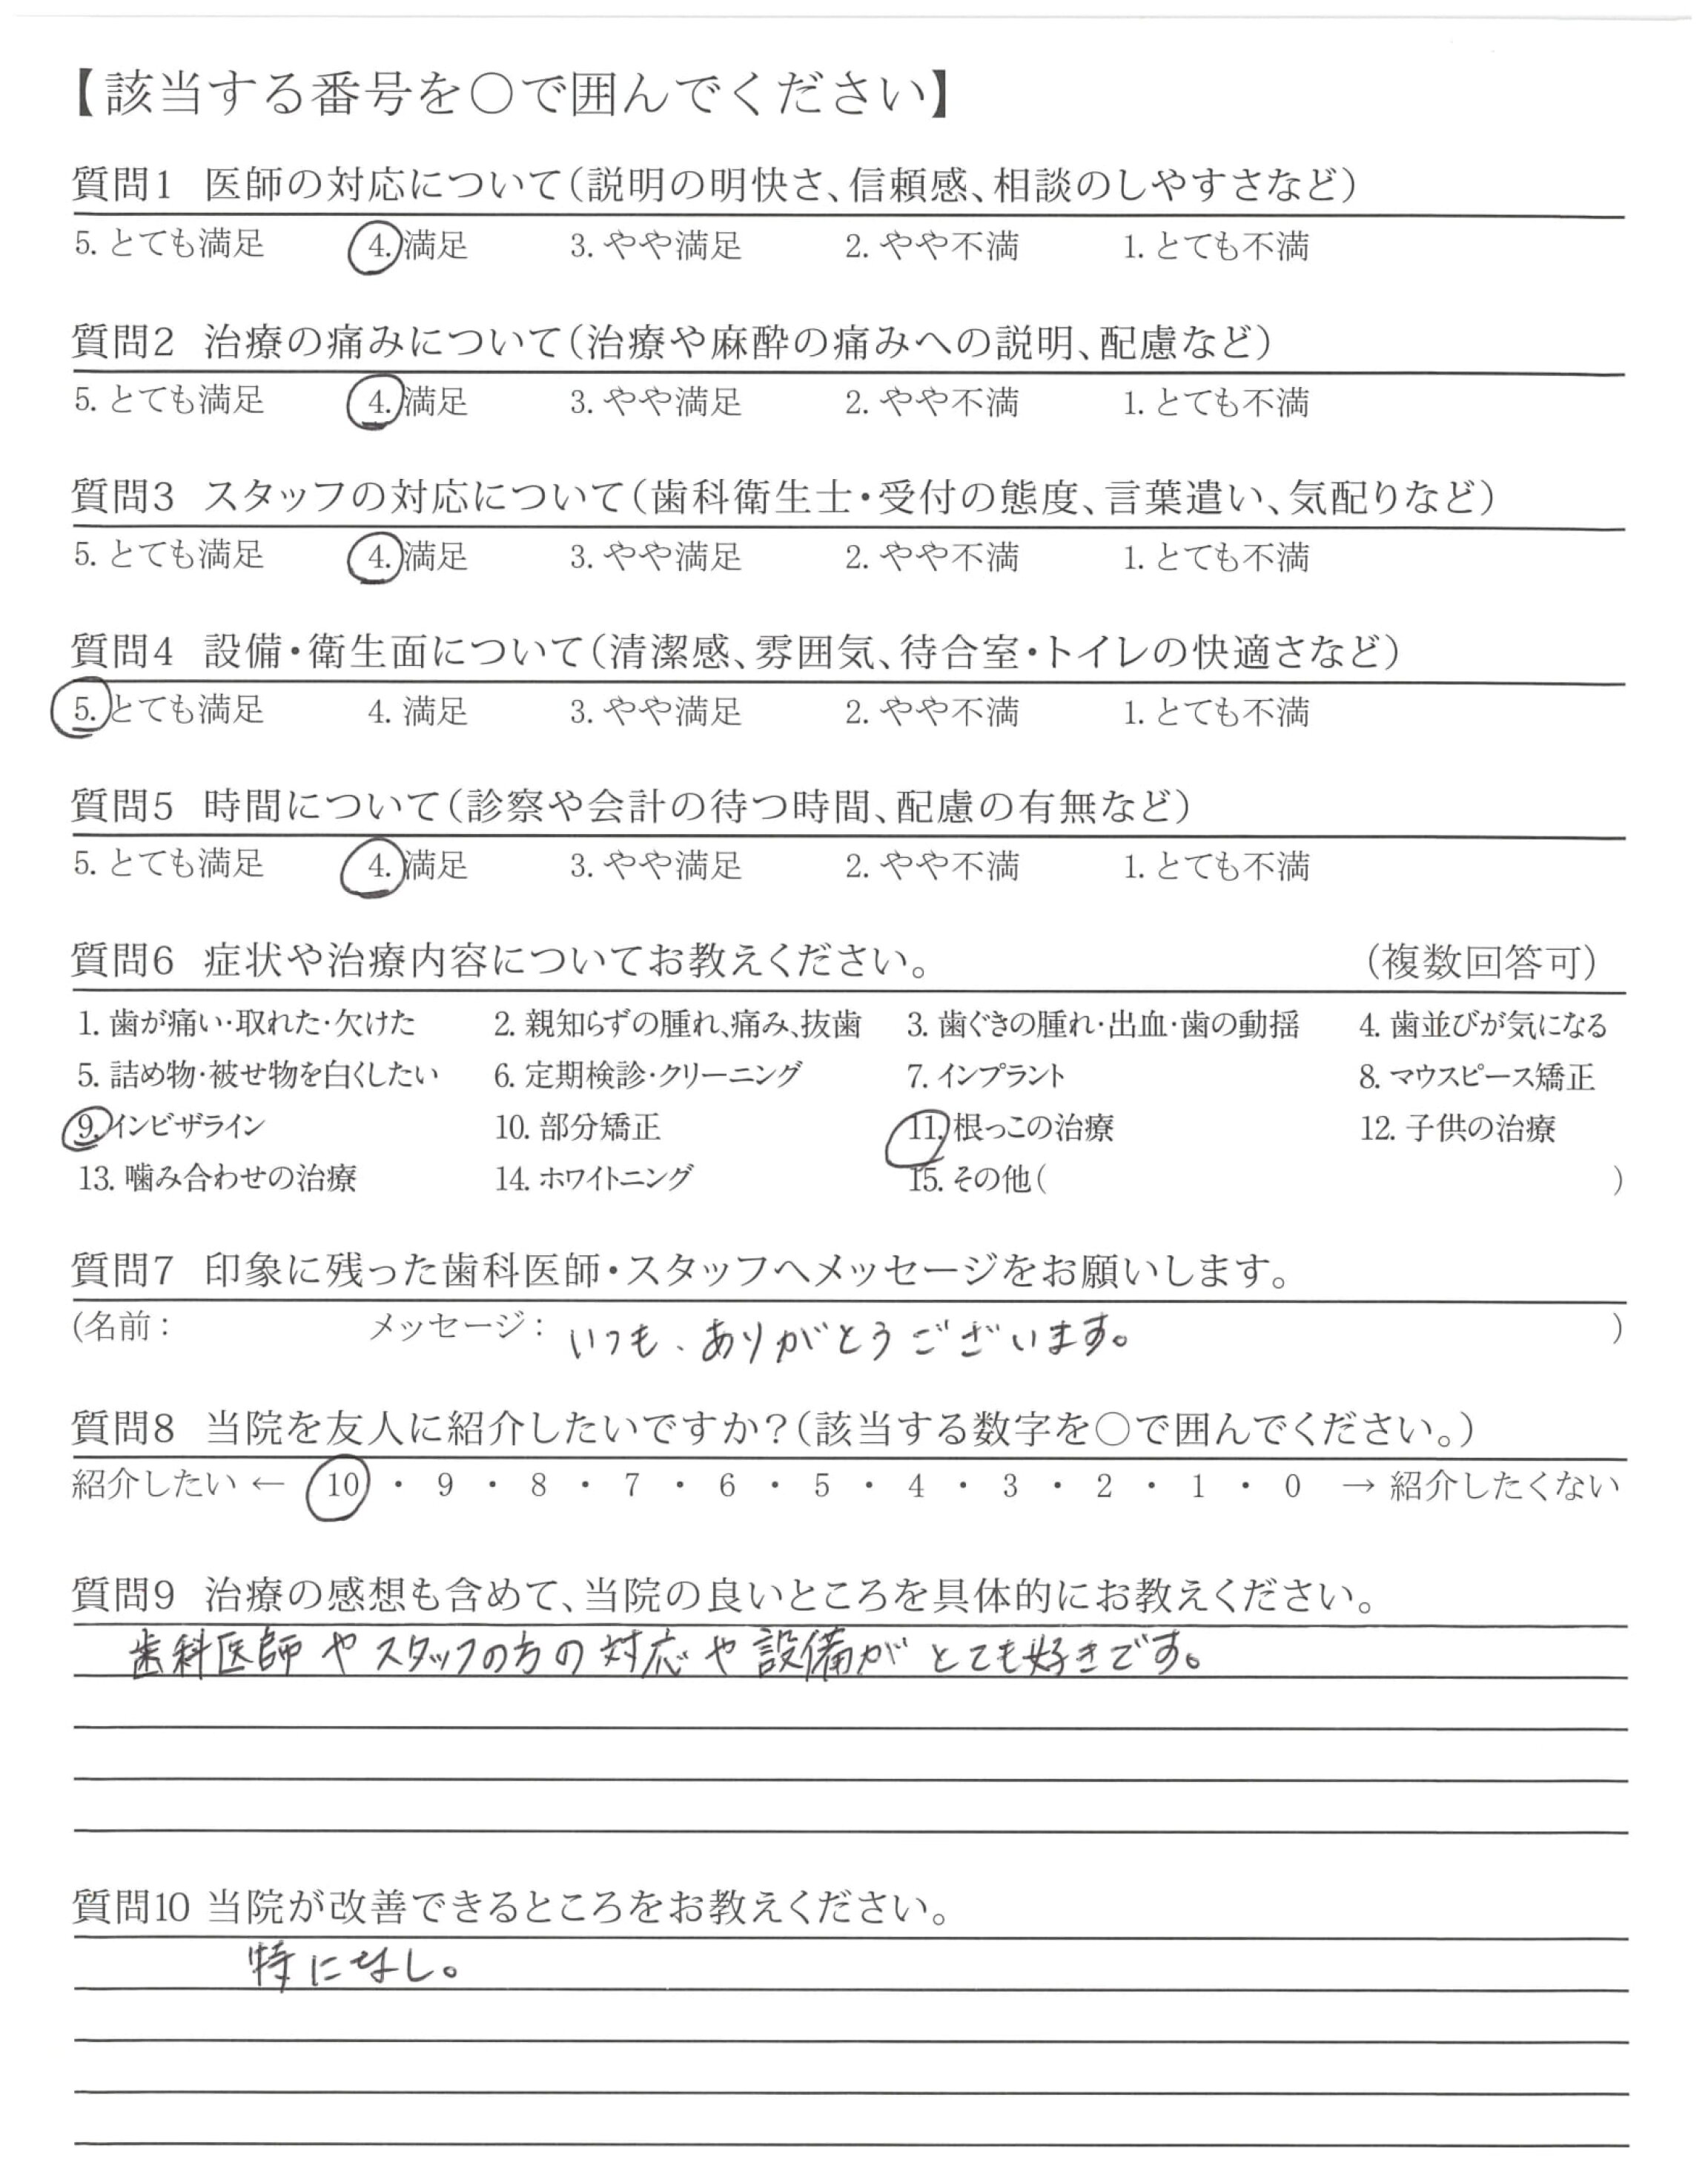 【該当する番号を○で囲んでください】
質問1 医師の対応について(説明の明快さ、信頼感、相談のしやすさなど)
5. とても満足 4. 満足 3. やや満足 2. やや不満 1. とても不満
質問2 治療の痛みについて(治療や麻酔の痛みへの説明、配慮など)
5. とても満足 4. 満足 3. やや満足 2. やや不満 1. とても不満
質問3 スタッフの対応について(歯科衛生士・受付の態度、言葉遣い、気配りなど)
5. とても満足 4. 満足 3. やや満足 2. やや不満 1. とても不満
質問4 設備・衛生面について(清潔感、雰囲気、待合室・トイレの快適さなど)
5. とても満足 4. 満足 3. やや満足 2. やや不満 1. とても不満
質問5 時間について(診察や会計の待つ時間、配慮の有無など)
5. とても満足 4. 満足 3. やや満足 2. やや不満 1. とても不満
質問6 症状や治療内容についてお教えください。 (複数回答可)
1. 歯が痛い・取れた・欠けた 2. 親知らずの腫れ、痛み、抜歯 3. 歯ぐきの腫れ・出血・歯の動揺 4. 歯並びが気になる
5. 詰め物・被せ物を白くしたい 6. 定期検診・クリーニング 7. インプラント 8. マウスピース矯正
9. インビザライン 10. 部分矯正 11. 根っこの治療 12. 子供の治療
13. 噛み合わせの治療 14. ホワイトニング 15. その他( )
質問7 印象に残った歯科医師・スタッフへメッセージをお願いします。
(名前: メッセージ: いつも、ありがとうございます。 )
質問8 当院を友人に紹介したいですか?(該当する数字を○で囲んでください。)
紹介したい ← 10 ・ 9 ・ 8 ・ 7 ・ 6 ・ 5 ・ 4 ・ 3 ・ 2 ・ 1 ・ 0 → 紹介したくない
質問9 治療の感想も含めて、当院の良いところを具体的にお教えください。
歯科医師やスタッフの方の対応や設備がとても好きです。
質問10 当院が改善できるところをお教えください。
特になし。